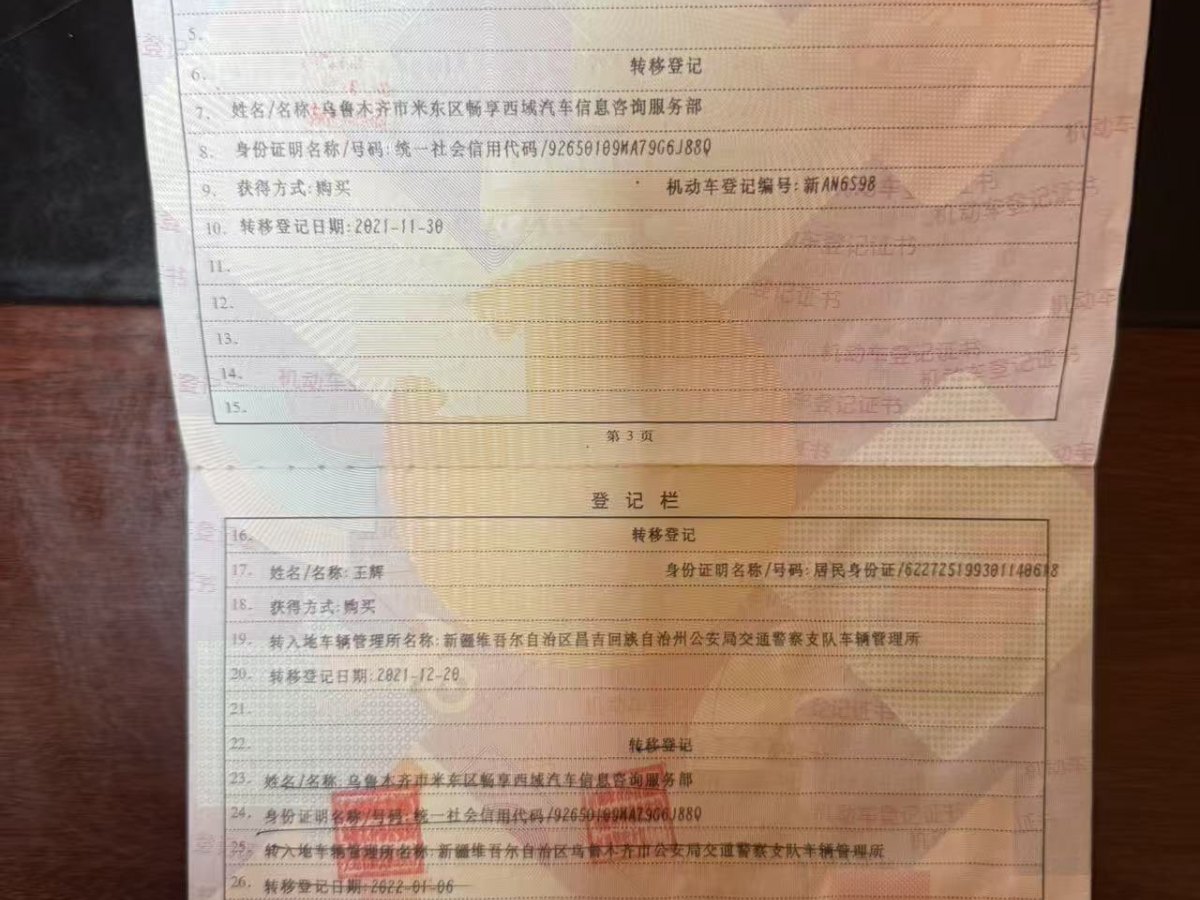 5.
6. 转移登记
7. 姓名/名称:乌鲁木齐市米东区畅享西域汽车信息咨询服务部
8. 身份证明名称/号码:统一社会信用代码/92650109MA79G6J88Q
9. 获得方式:购买 机动车登记编号:新AN6S98
10. 转移登记日期:2021-11-30
11.
12.
13.
14.
15.
第 3 页
登 记 栏
16. 转移登记
17. 姓名/名称:王辉 身份证明名称/号码:居民身份证/622725199301140618
18. 获得方式:购买
19. 转入地车辆管理所名称:新疆维吾尔自治区昌吉回族自治州公安局交通警察支队车辆管理所
20. 转移登记日期:2021-12-20
21.
22. 转移登记
23. 姓名/名称:乌鲁木齐市米东区畅享西域汽车信息咨询服务部
24. 身份证明名称/号码:统一社会信用代码/92650109MA79G6J88Q
25. 转入地车辆管理所名称:新疆维吾尔自治区乌鲁木齐市公安局交通警察支队车辆管理所
26. 转移登记日期:2022-01-06